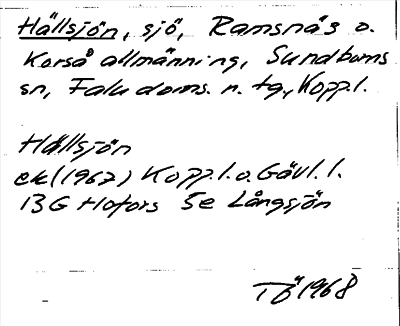 Hällsjön, sjö, Ramsnäs o.
Korså allmänning, Sundborns
sn, Falu doms. n. tg., Kopp.l.
Hällsjön
ek (1967) Kopp.l. o. Gävl.l.
13G Hofors 5e Långsjön
TÖ 1968